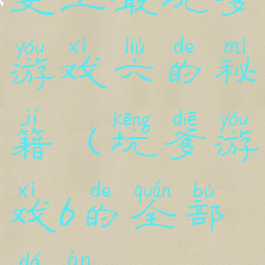 史上最坑爹
yóu xì liù de mì
游戏六的秘
jí kēng diē yóu
籍（坑爹游
xì de quán bù
戏6的全部
dá àn